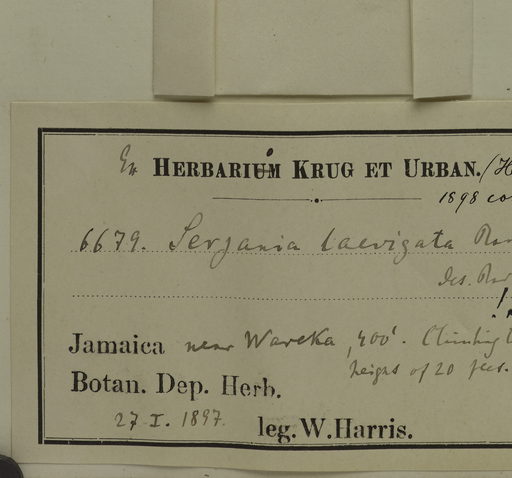 Ex HERBARIO KRUG ET URBAN.
1898
6679. Serjania laevigata
Jamaica near Wareka, 400'. Climbing
heights of 20 feet.
Botan. Dep. Herb.
27. I. 1897. leg. W. Harris.